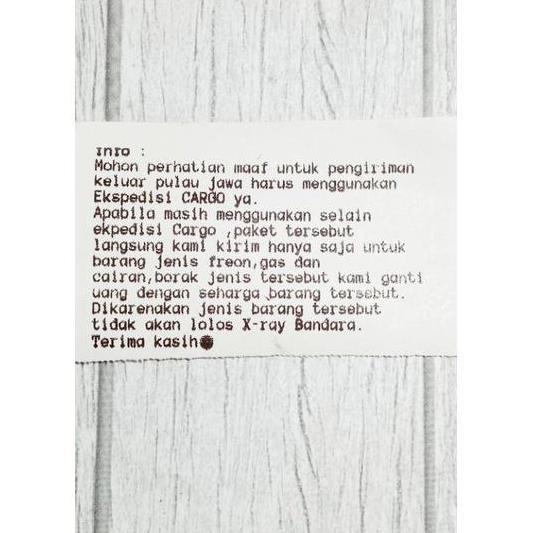 Info :
Mohon perhatian maaf untuk pengiriman
keluar pulau jawa harus menggunakan
Ekspedisi CARGO ya.
Apabila masih menggunakan selain
ekpedisi Cargo ,paket tersebut
langsung kami kirim hanya saja untuk
barang jenis freon,gas dan
cairan,borak jenis tersebut kami ganti
uang dengan seharga barang tersebut.
Dikarenakan jenis barang tersebut
tidak akan lolos X-ray Bandara.
Terima kasih